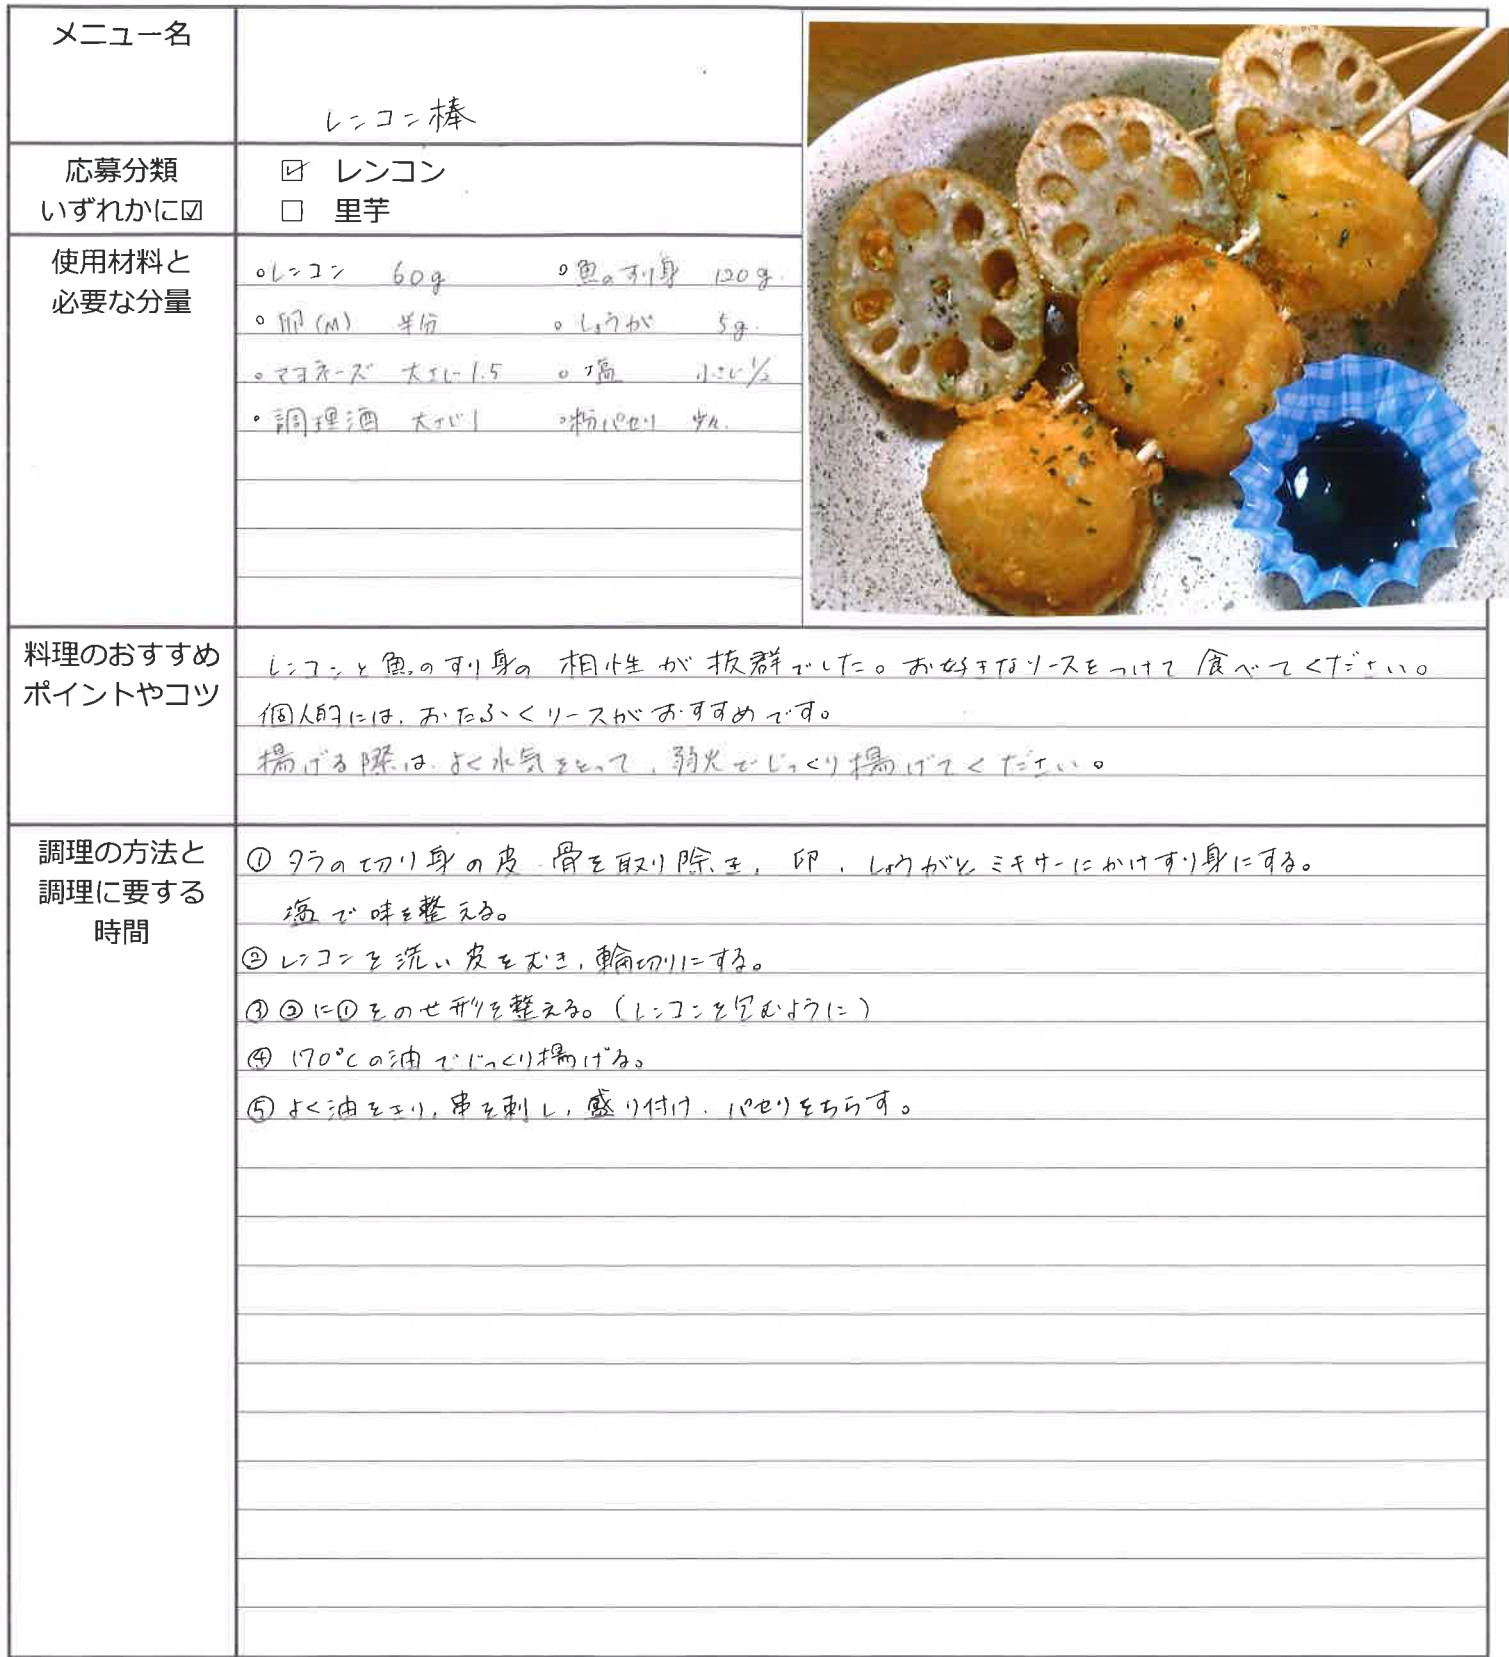 メニュー名
レンコン棒
応募分類
いずれかに☑
☑ レンコン
□ 里芋
使用材料と
必要な分量
○レンコン 60g ○魚のすり身 120g.
○卵(M) 半分 ○しょうが 5g.
○マヨネーズ 大さじ1.5 ○塩 小さじ1/2
○調理酒 大さじ1 ○粉パセリ 少々.
料理のおすすめ
ポイントやコツ
レンコンと魚のすり身の相性が抜群でした。お好きなソースをつけて食べてください。
個人的には、おたふくソースがおすすめです。
揚げる際は、よく水気をとって、弱火でじっくり揚げてください。
調理の方法と
調理に要する
時間
① タラの切り身の皮、骨を取り除き、卵、しょうがとミキサーにかけすり身にする。
塩で味を整える。
② レンコンを洗い皮をむき、輪切りにする。
③ ②に①をのせ形を整える。(レンコンを包むように)
④ 170℃の油でじっくり揚げる。
⑤ よく油をきり、串を刺し、盛り付け、パセリをちらす。